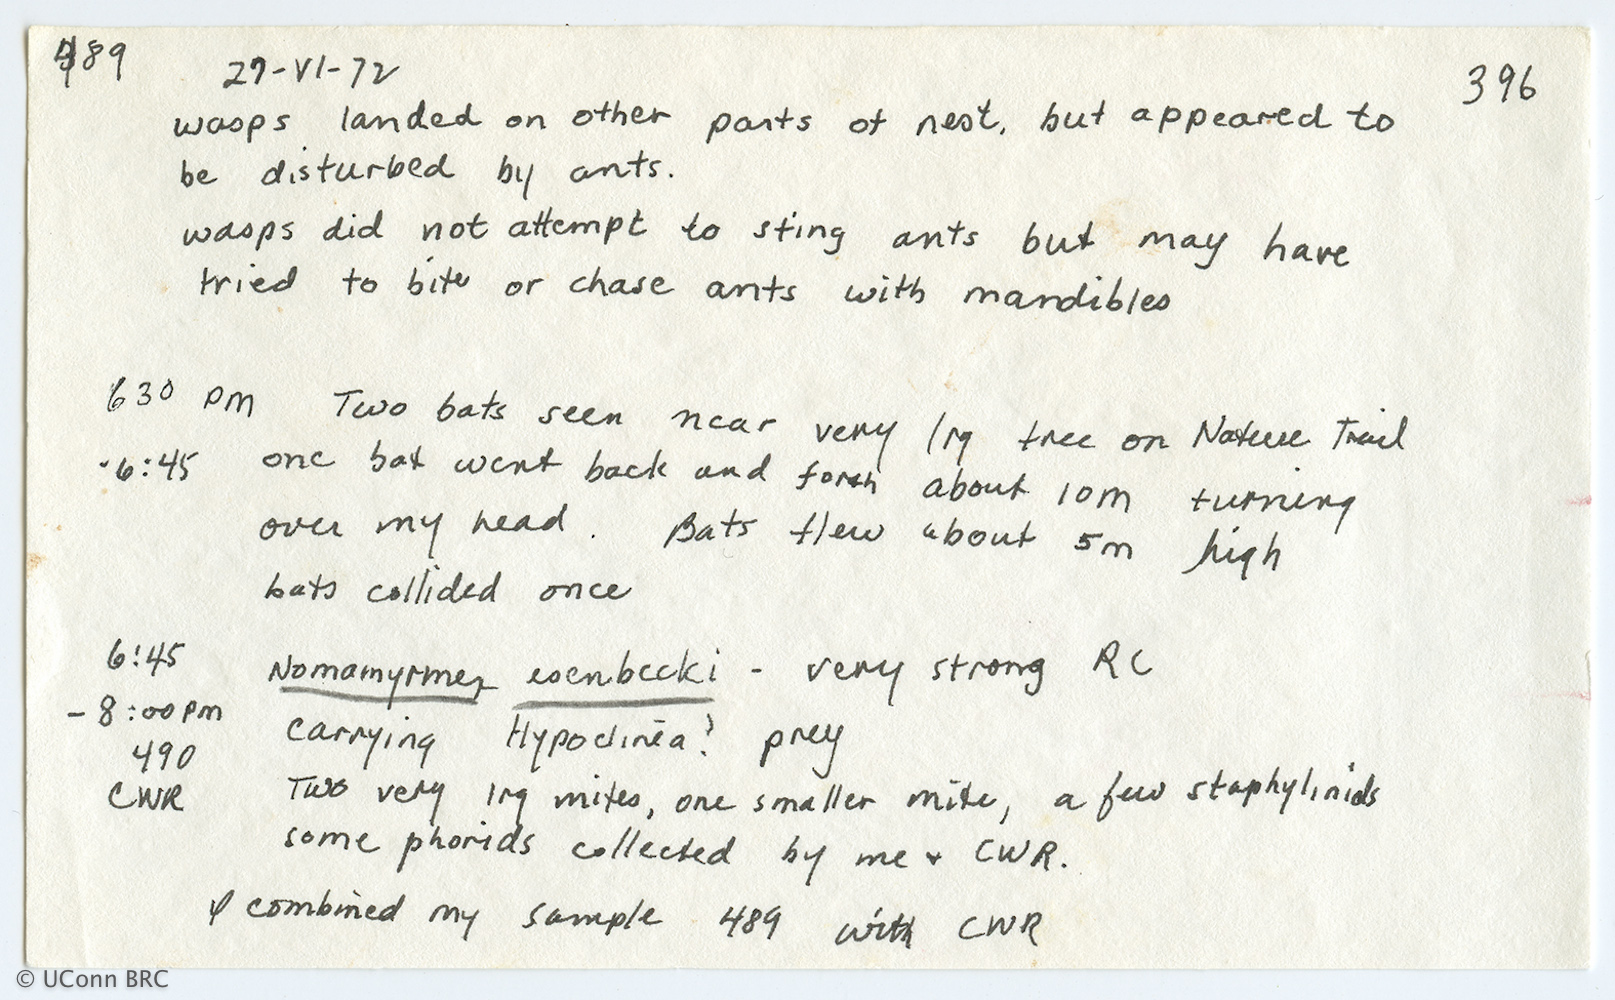 489
29-VI-72
396
wasps landed on other parts of nest, but appeared to
be disturbed by ants.
wasps did not attempt to sting ants but may have
tried to bite or chase ants with mandibles
630 pm Two bats seen near very lrg tree on Nature Trail
-6:45 one bat went back and forth about 10m turning
over my head. Bats flew about 5m high
bats collided once
6:45 Nomamyrmex esenbecki - very strong RC
-8:00pm carrying Hypoclinea? prey
490
CWR Two very lrg mites, one smaller mite, a few staphylinids
some phorids collected by me + CWR.
I combined my sample 489 with CWR
© UConn BRC